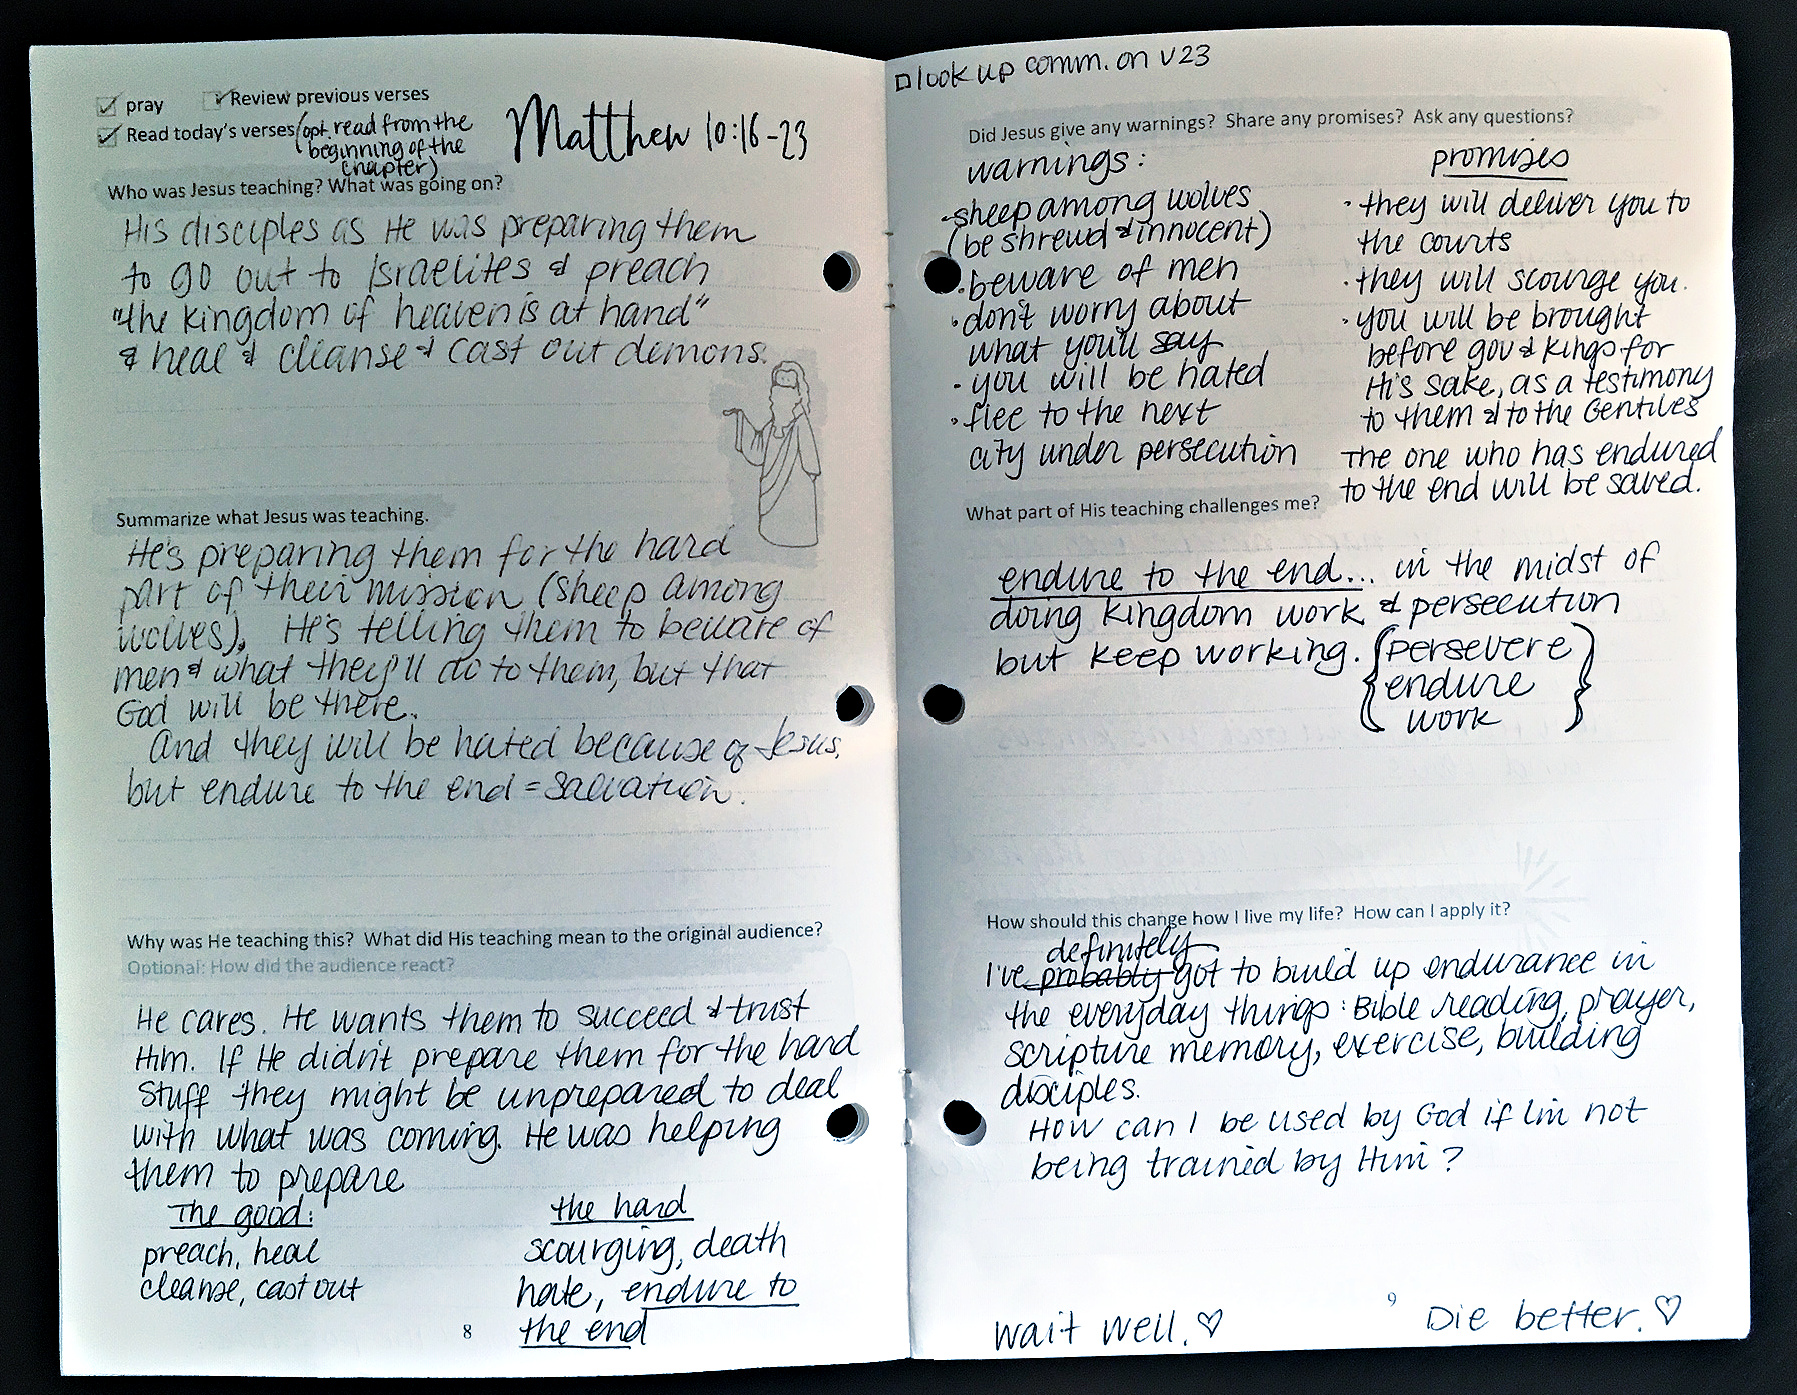 pray
Review previous verses
Read today's verses (opt. read from the
beginning of the
chapter)
Matthew 10:16-23
Who was Jesus teaching? What was going on?
His disciples as He was preparing them
to go out to Israelites & preach
"the kingdom of heaven is at hand"
& heal & cleanse & cast out demons.
Summarize what Jesus was teaching.
He's preparing them for the hard
part of their mission (sheep among
wolves). He's telling them to beware of
men & what they'll do to them, but that
God will be there.
And they will be hated because of Jesus,
but endure to the end = Salvation.
Why was He teaching this? What did His teaching mean to the original audience?
Optional: How did the audience react?
He cares. He wants them to succeed & trust
Him. If He didn't prepare them for the hard
stuff they might be unprepared to deal
with what was coming. He was helping
them to prepare
The good:
preach, heal
cleanse, cast out
the hard
scourging, death
hate, endure to
the end
8
look up comm. on v23
Did Jesus give any warnings? Share any promises? Ask any questions?
warnings:
· sheep among wolves
(be shrewd & innocent)
· beware of men
· don't worry about
what you'll say
· you will be hated
· flee to the next
city under persecution
promises
· they will deliver you to
the courts
· they will scourge you.
· you will be brought
before gov & kings for
His sake, as a testimony
to them & to the Gentiles
The one who has endured
to the end will be saved.
What part of His teaching challenges me?
endure to the end... in the midst of
doing kingdom work & persecution
but keep working. {persevere}
endure
work
How should this change how I live my life? How can I apply it?
definitely
I've probably got to build up endurance in
the everyday things: Bible reading, prayer,
scripture memory, exercise, building
disciples.
How can I be used by God if I'm not
being trained by Him?
wait well. ♡
9
Die better. ♡